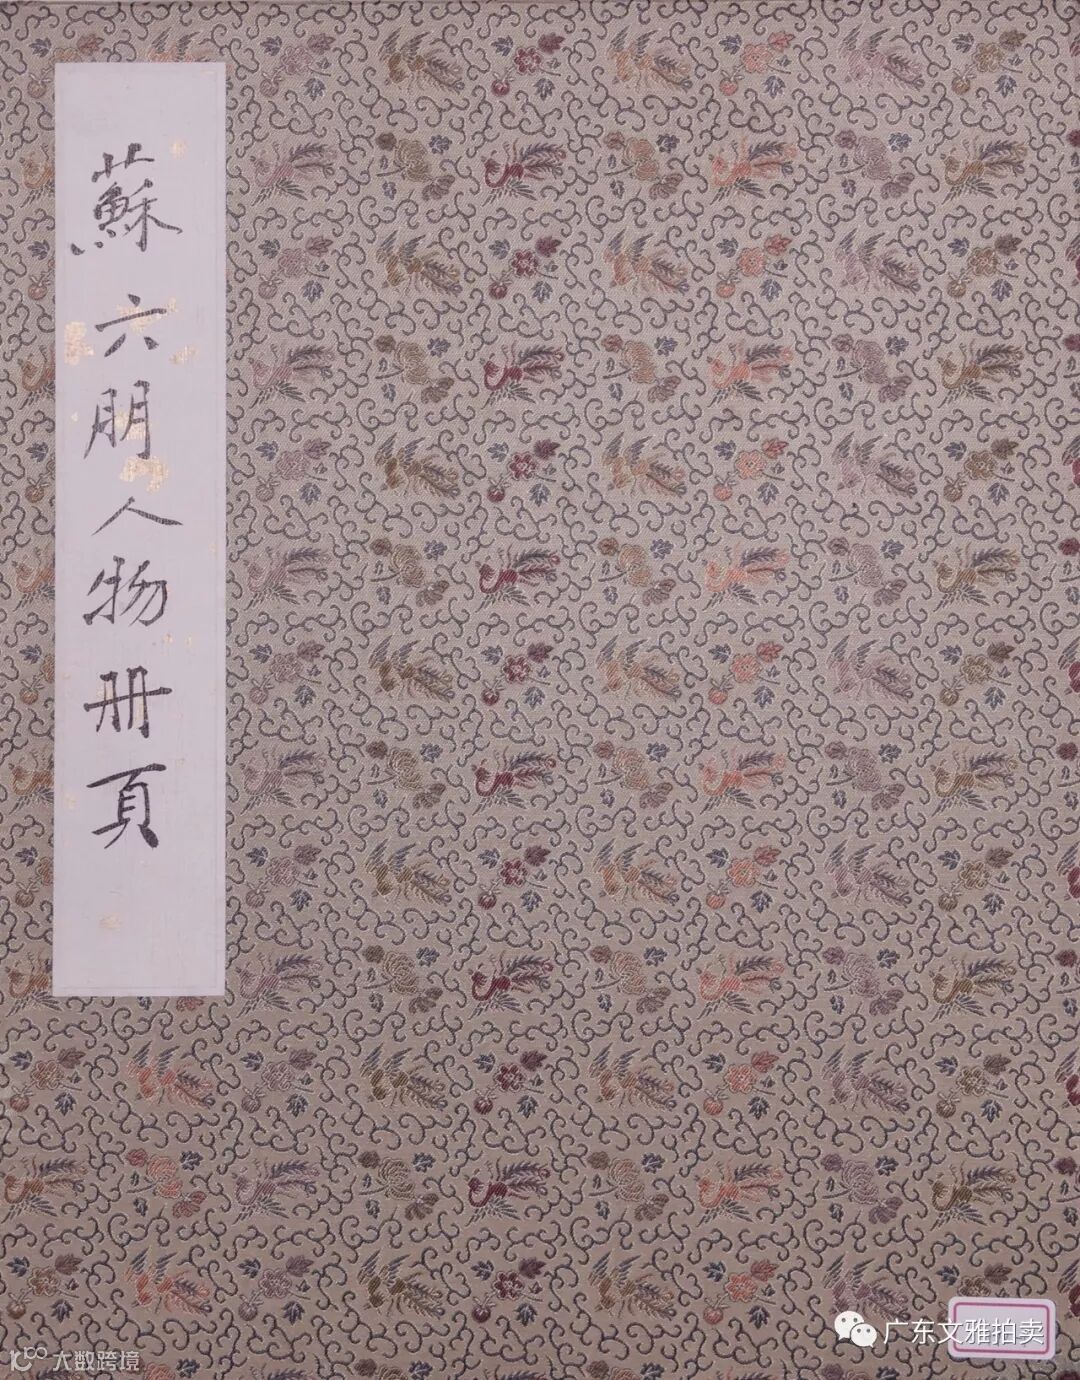 蘇六朋人物册頁
广东文雅拍卖
大数跨境